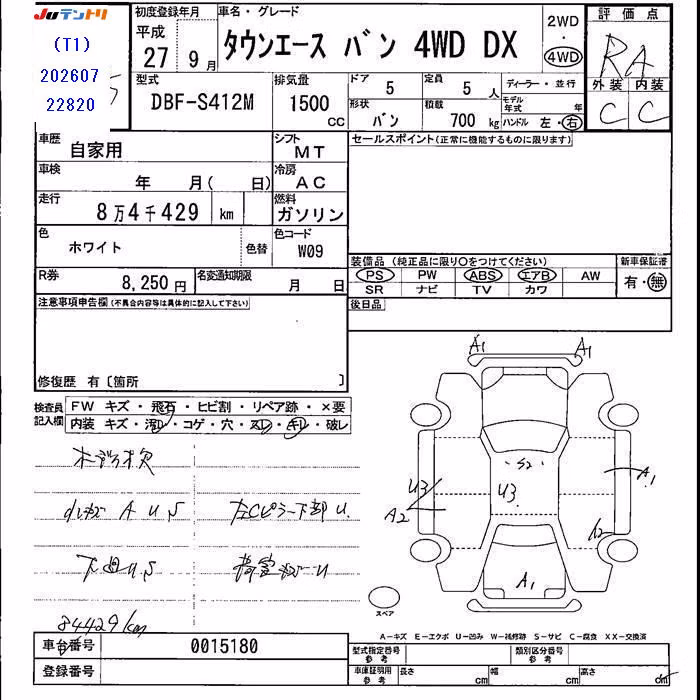 JUテントリ
(T1)
202607
22820
初度登録年月
平成
27 9月
車名・グレード
タウンエース バン 4WD DX
2WD
・
4WD
評価点
RA
外装 内装
C C
型式
DBF-S412M
排気量
1500
CC
ドア
5
定員
5人
形状
バン
積載
700kg
ディーラー・並行
モデル年式 年
ハンドル 左・右
車歴
自家用
シフト
MT
車検
年 月( 日)
冷房
AC
走行
8万4千429 km
燃料
ガソリン
色
ホワイト
色替
色コード
W09
R券
8,250円
名変通知期限
月 日
セールスポイント(正常に機能するものに限ります)
装備品(純正品に限り〇をつけてください)
PS PW ABS エアB AW
SR ナビ TV カワ
新車保証書
有・無
後日品
注意事項申告欄(不具合内容等は具体的に記入して下さい)
修復歴 有〔箇所 〕
検査員
記入欄
FW キズ・飛石・ヒビ割・リペア跡・×要
内装 キズ・汚レ・コゲ・穴・スレ・キレ・破レ
A U S
左Cピラー下部 U.
下回 U.S
84429km
A1 A1
S2
U3
U3
A2
A1
A1
スペア
A-キズ E-エクボ U-凹み W-補修跡 S-サビ C-腐食 XX-交換済
車台番号
0015180
登録番号
型式指定番号
参考
類別区分番号
参考
車庫証明用
参考
長さ cm 幅 cm 高さ cm